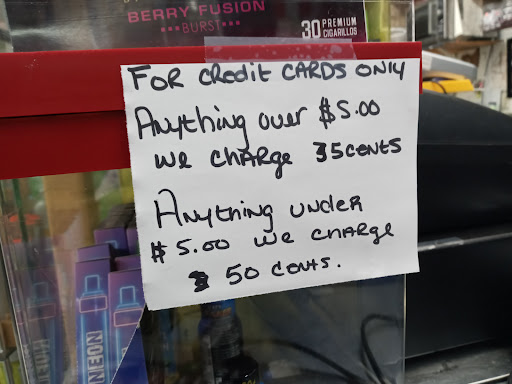 BERRY FUSION
BURST
30 PREMIUM
CIGARILLOS
FOR CREDIT CARDS ONLY
Anything over $5.00
we charge 35 cents
Anything under
$5.00 we charge
50 cents.
NEON